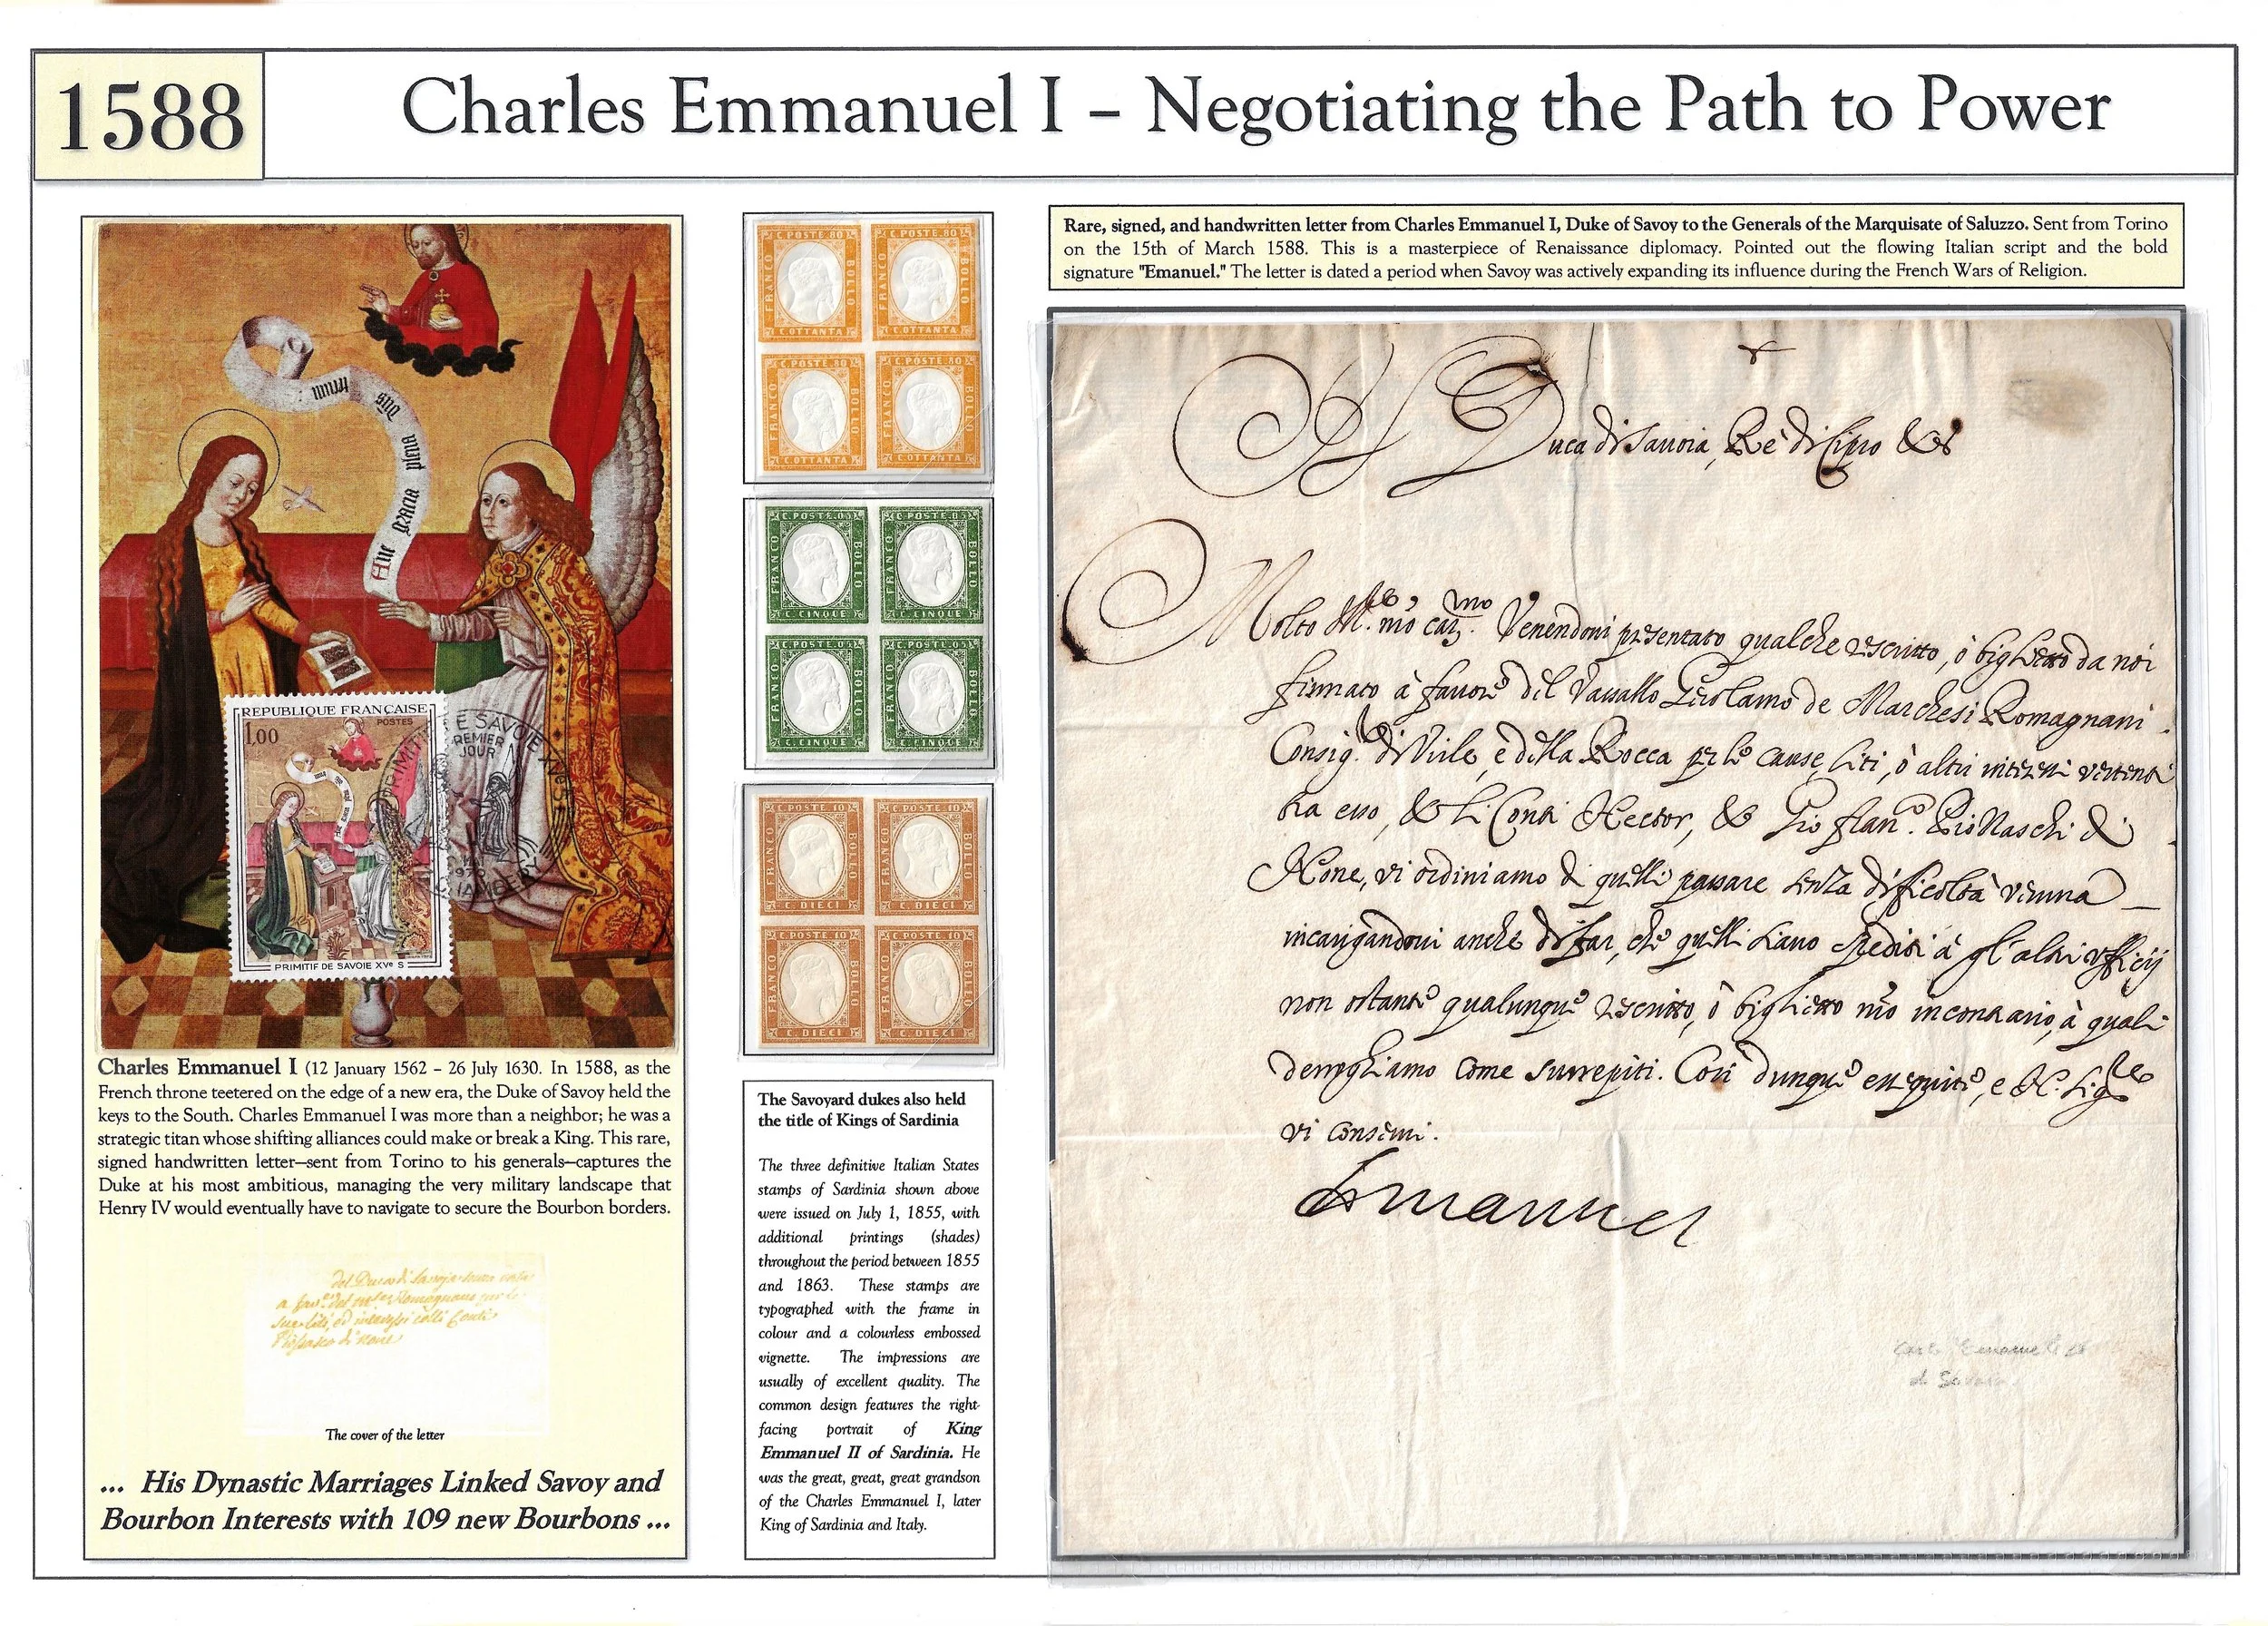 1588
Charles Emmanuel I – Negotiating the Path to Power
Ave gracia plena
dñs tecum
REPUBLIQUE FRANÇAISE
POSTES
1,00
PRIMITIF DE SAVOIE XVᵉ S
PRIMITIF DE SAVOIE XVe S
PREMIER
JOUR
CHAMBERY
Charles Emmanuel I (12 January 1562 – 26 July 1630. In 1588, as the
French throne teetered on the edge of a new era, the Duke of Savoy held the
keys to the South. Charles Emmanuel I was more than a neighbor; he was a
strategic titan whose shifting alliances could make or break a King. This rare,
signed handwritten letter—sent from Torino to his generals—captures the
Duke at his most ambitious, managing the very military landscape that
Henry IV would eventually have to navigate to secure the Bourbon borders.
del Duca di Savoja
a fav.re del Romagnano per le
sue liti, ed interessi colli Conti
Piossasco di None
The cover of the letter
... His Dynastic Marriages Linked Savoy and
Bourbon Interests with 109 new Bourbons ...
C. POSTE. 80 FRANCO BOLLO C. OTTANTA
C. POSTE. 80 FRANCO BOLLO C. OTTANTA
C. POSTE. 80 FRANCO BOLLO C. OTTANTA
C. POSTE. 80 FRANCO BOLLO C. OTTANTA
C. POSTE. 05 FRANCO BOLLO C. CINQUE
C. POSTE. 05 FRANCO BOLLO C. CINQUE
C. POSTE. 05 FRANCO BOLLO C. CINQUE
C. POSTE. 05 FRANCO BOLLO C. CINQUE
C. POSTE. 10 FRANCO BOLLO C. DIECI
C. POSTE. 10 FRANCO BOLLO C. DIECI
C. POSTE. 10 FRANCO BOLLO C. DIECI
C. POSTE. 10 FRANCO BOLLO C. DIECI
The Savoyard dukes also held
the title of Kings of Sardinia
The three definitive Italian States
stamps of Sardinia shown above
were issued on July 1, 1855, with
additional printings (shades)
throughout the period between 1855
and 1863. These stamps are
typographed with the frame in
colour and a colourless embossed
vignette. The impressions are
usually of excellent quality. The
common design features the right-
facing portrait of King
Emmanuel II of Sardinia. He
was the great, great, great grandson
of the Charles Emmanuel I, later
King of Sardinia and Italy.
Rare, signed, and handwritten letter from Charles Emmanuel I, Duke of Savoy to the Generals of the Marquisate of Saluzzo. Sent from Torino
on the 15th of March 1588. This is a masterpiece of Renaissance diplomacy. Pointed out the flowing Italian script and the bold
signature "Emanuel." The letter is dated a period when Savoy was actively expanding its influence during the French Wars of Religion.
Il Duca di Savoia, Rè di Cipro &c
Molto M.co nro car.mo Venendovi presentato qualche rescritto, ò biglietto da noi
firmato à favore del Vassallo Girolamo de Marchesi Romagnani
Consig.ri di Virle, e della Rocca per le cause, liti, ò altri interessi vertenti
tra esso, & li Conti Hector, & Gio fran.co Piossaschi di
None, vi ordiniamo di quelli passare senza difficoltà veruna
incarigandovi anche di far, che quelli siano spediti à gl'altri ufficij
non ostante qualunque rescritto, ò biglietto nro incontrario, à quali
deroghiamo come surrepiti. Così dunque esseguite, e N. Sig.re
vi conservi.
Emanuel
Carlo Emanuele
di Savoia